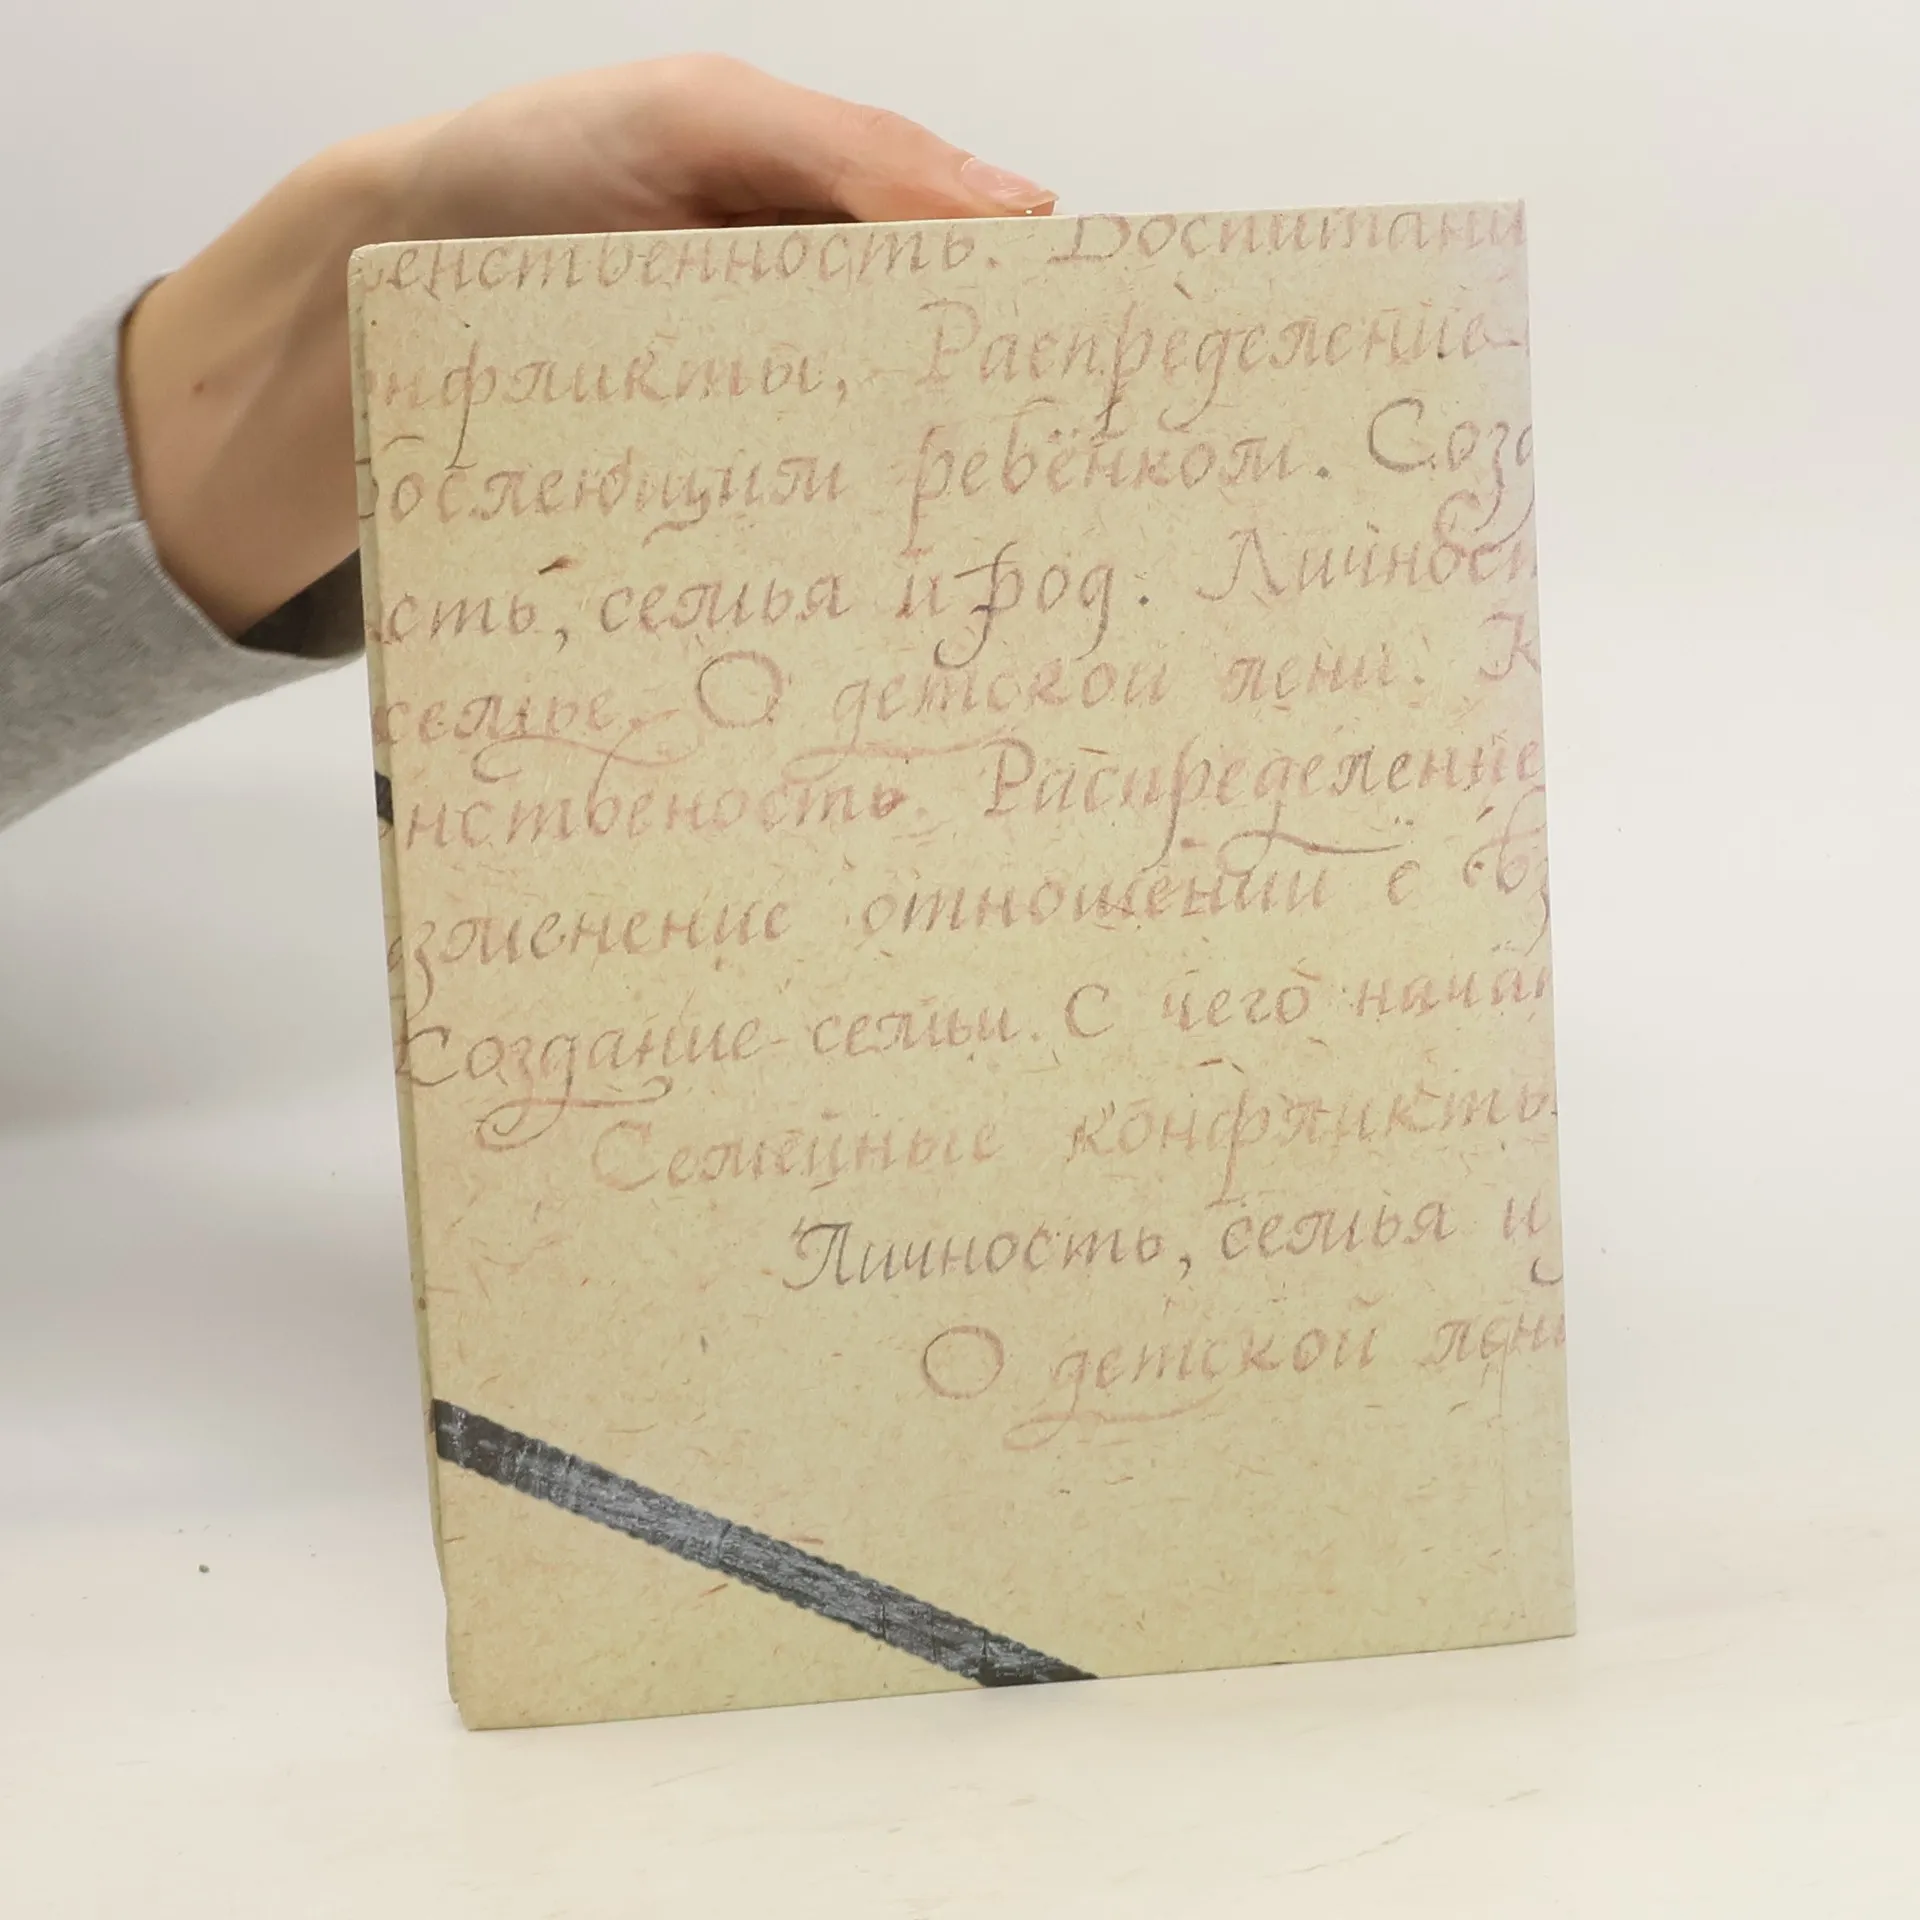 енственность. Воспитани
нфликты, Распределение
ослеющим ребёнком. Созд
сть, семья и род. Личност
семье. О детской лени. К
нственость. Распределение
зменение отношений с вз
Создание семьи. С чего начат
Семейные конфликты
Личность, семья и
О детской лени